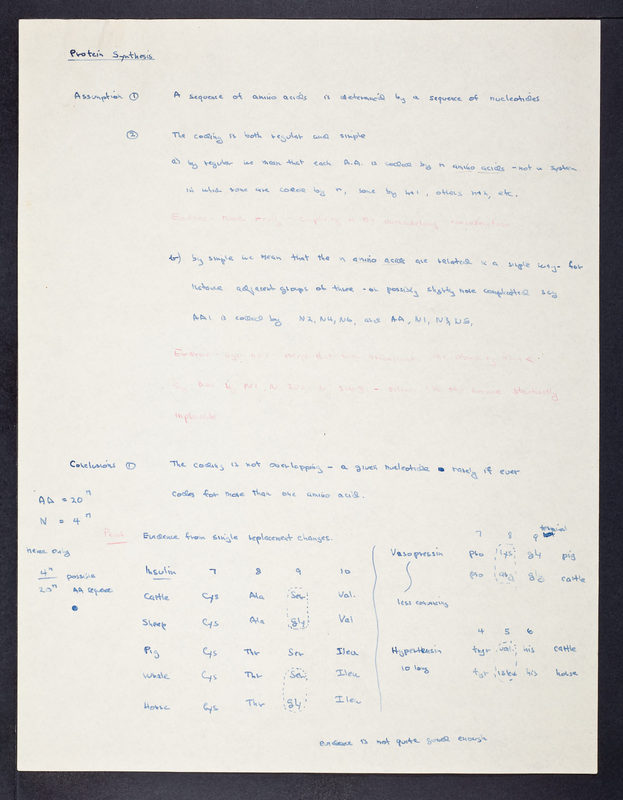 Protein Synthesis
Assumption ① A sequence of amino acids is determined by a sequence of nucleotides
② The coding is both regular and simple
a) by regular we mean that each A.A. is coded by n amino acids - not a system
in which some are coded by n, some by n+1, others n+2, etc.
b) by simple we mean that the n amino acids are related in a simple way - for
instance adjacent groups of three - or possibly slightly more complicated say
AA1 is coded by N2, N4, N6, and AA, N1, N3, N5,
Conclusions ① The coding is not overlapping - a given nucleotide rarely if ever
codes for more than one amino acid.
AA = 20ⁿ
N = 4ⁿ
Evidence from single replacement changes.
hence only
4ⁿ possible
20ⁿ AA sequence
Insulin 7 8 9 10
Cattle Cys Ala Ser Val.
Sheep Cys Ala Gly Val
Pig Cys Thr Ser Ileu
Whale Cys Thr Ser Ileu
Horse Cys Thr Gly Ileu
7 8 9 terminal
Vasopressin pro lys gly pig
pro arg gly cattle
less convincing
4 5 6
Hypertensin tyr val his cattle
10 long tyr ileu his horse
evidence is not quite good enough